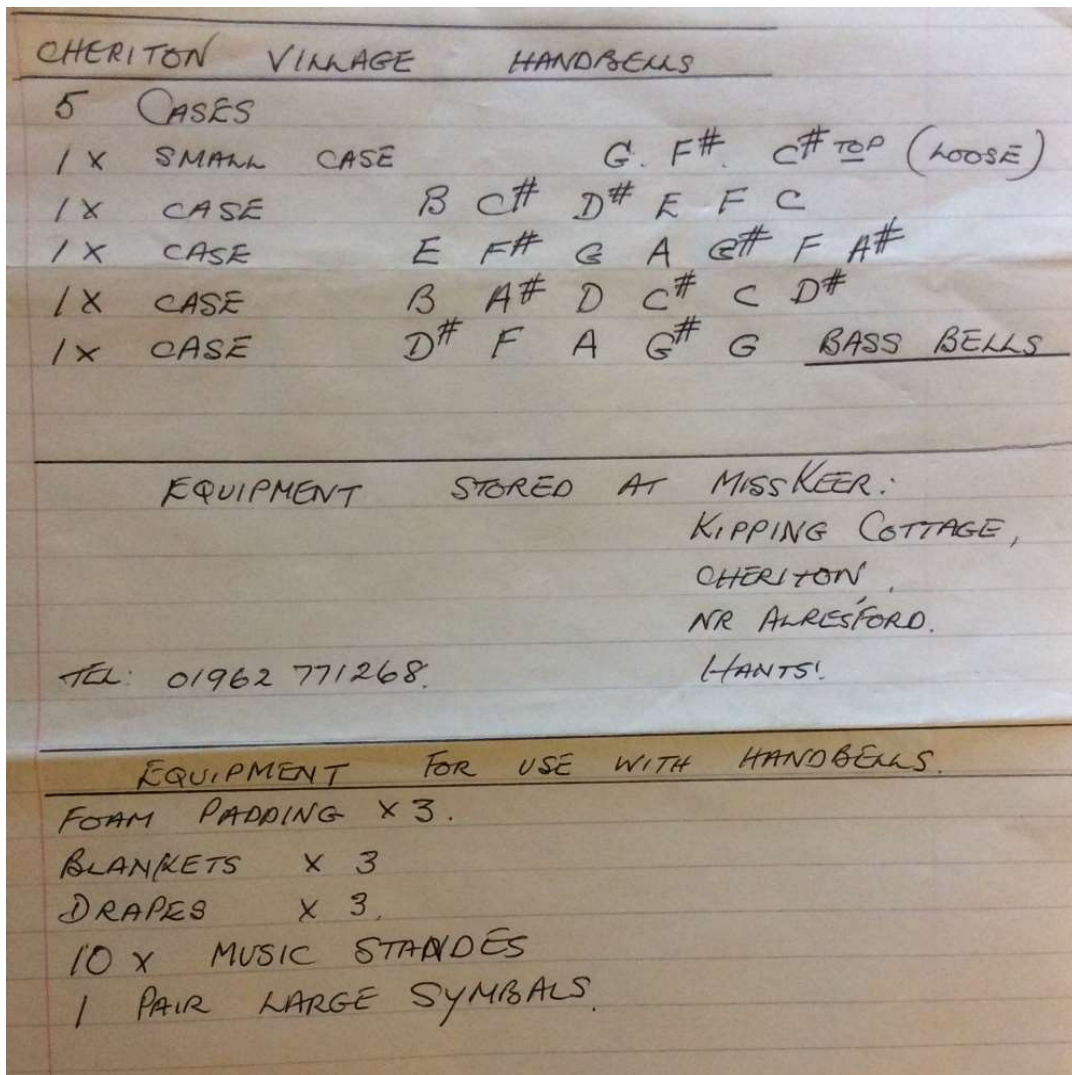 CHERITON VILLAGE HANDBELLS
5 CASES
1 X SMALL CASE G. F#. C# TOP (LOOSE)
1 X CASE B C# D# E F C
1 X CASE E F# G A G# F A#
1 X CASE B A# D C# C D#
1 X CASE D# F A G# G BASS BELLS
EQUIPMENT STORED AT MISS KEER:
KIPPING COTTAGE,
CHERITON,
NR ALRESFORD.
TEL: 01962 771268. HANTS.
EQUIPMENT FOR USE WITH HANDBELLS.
FOAM PADDING X 3.
BLANKETS X 3
DRAPES X 3.
10 X MUSIC STANDES
1 PAIR LARGE SYMBALS.